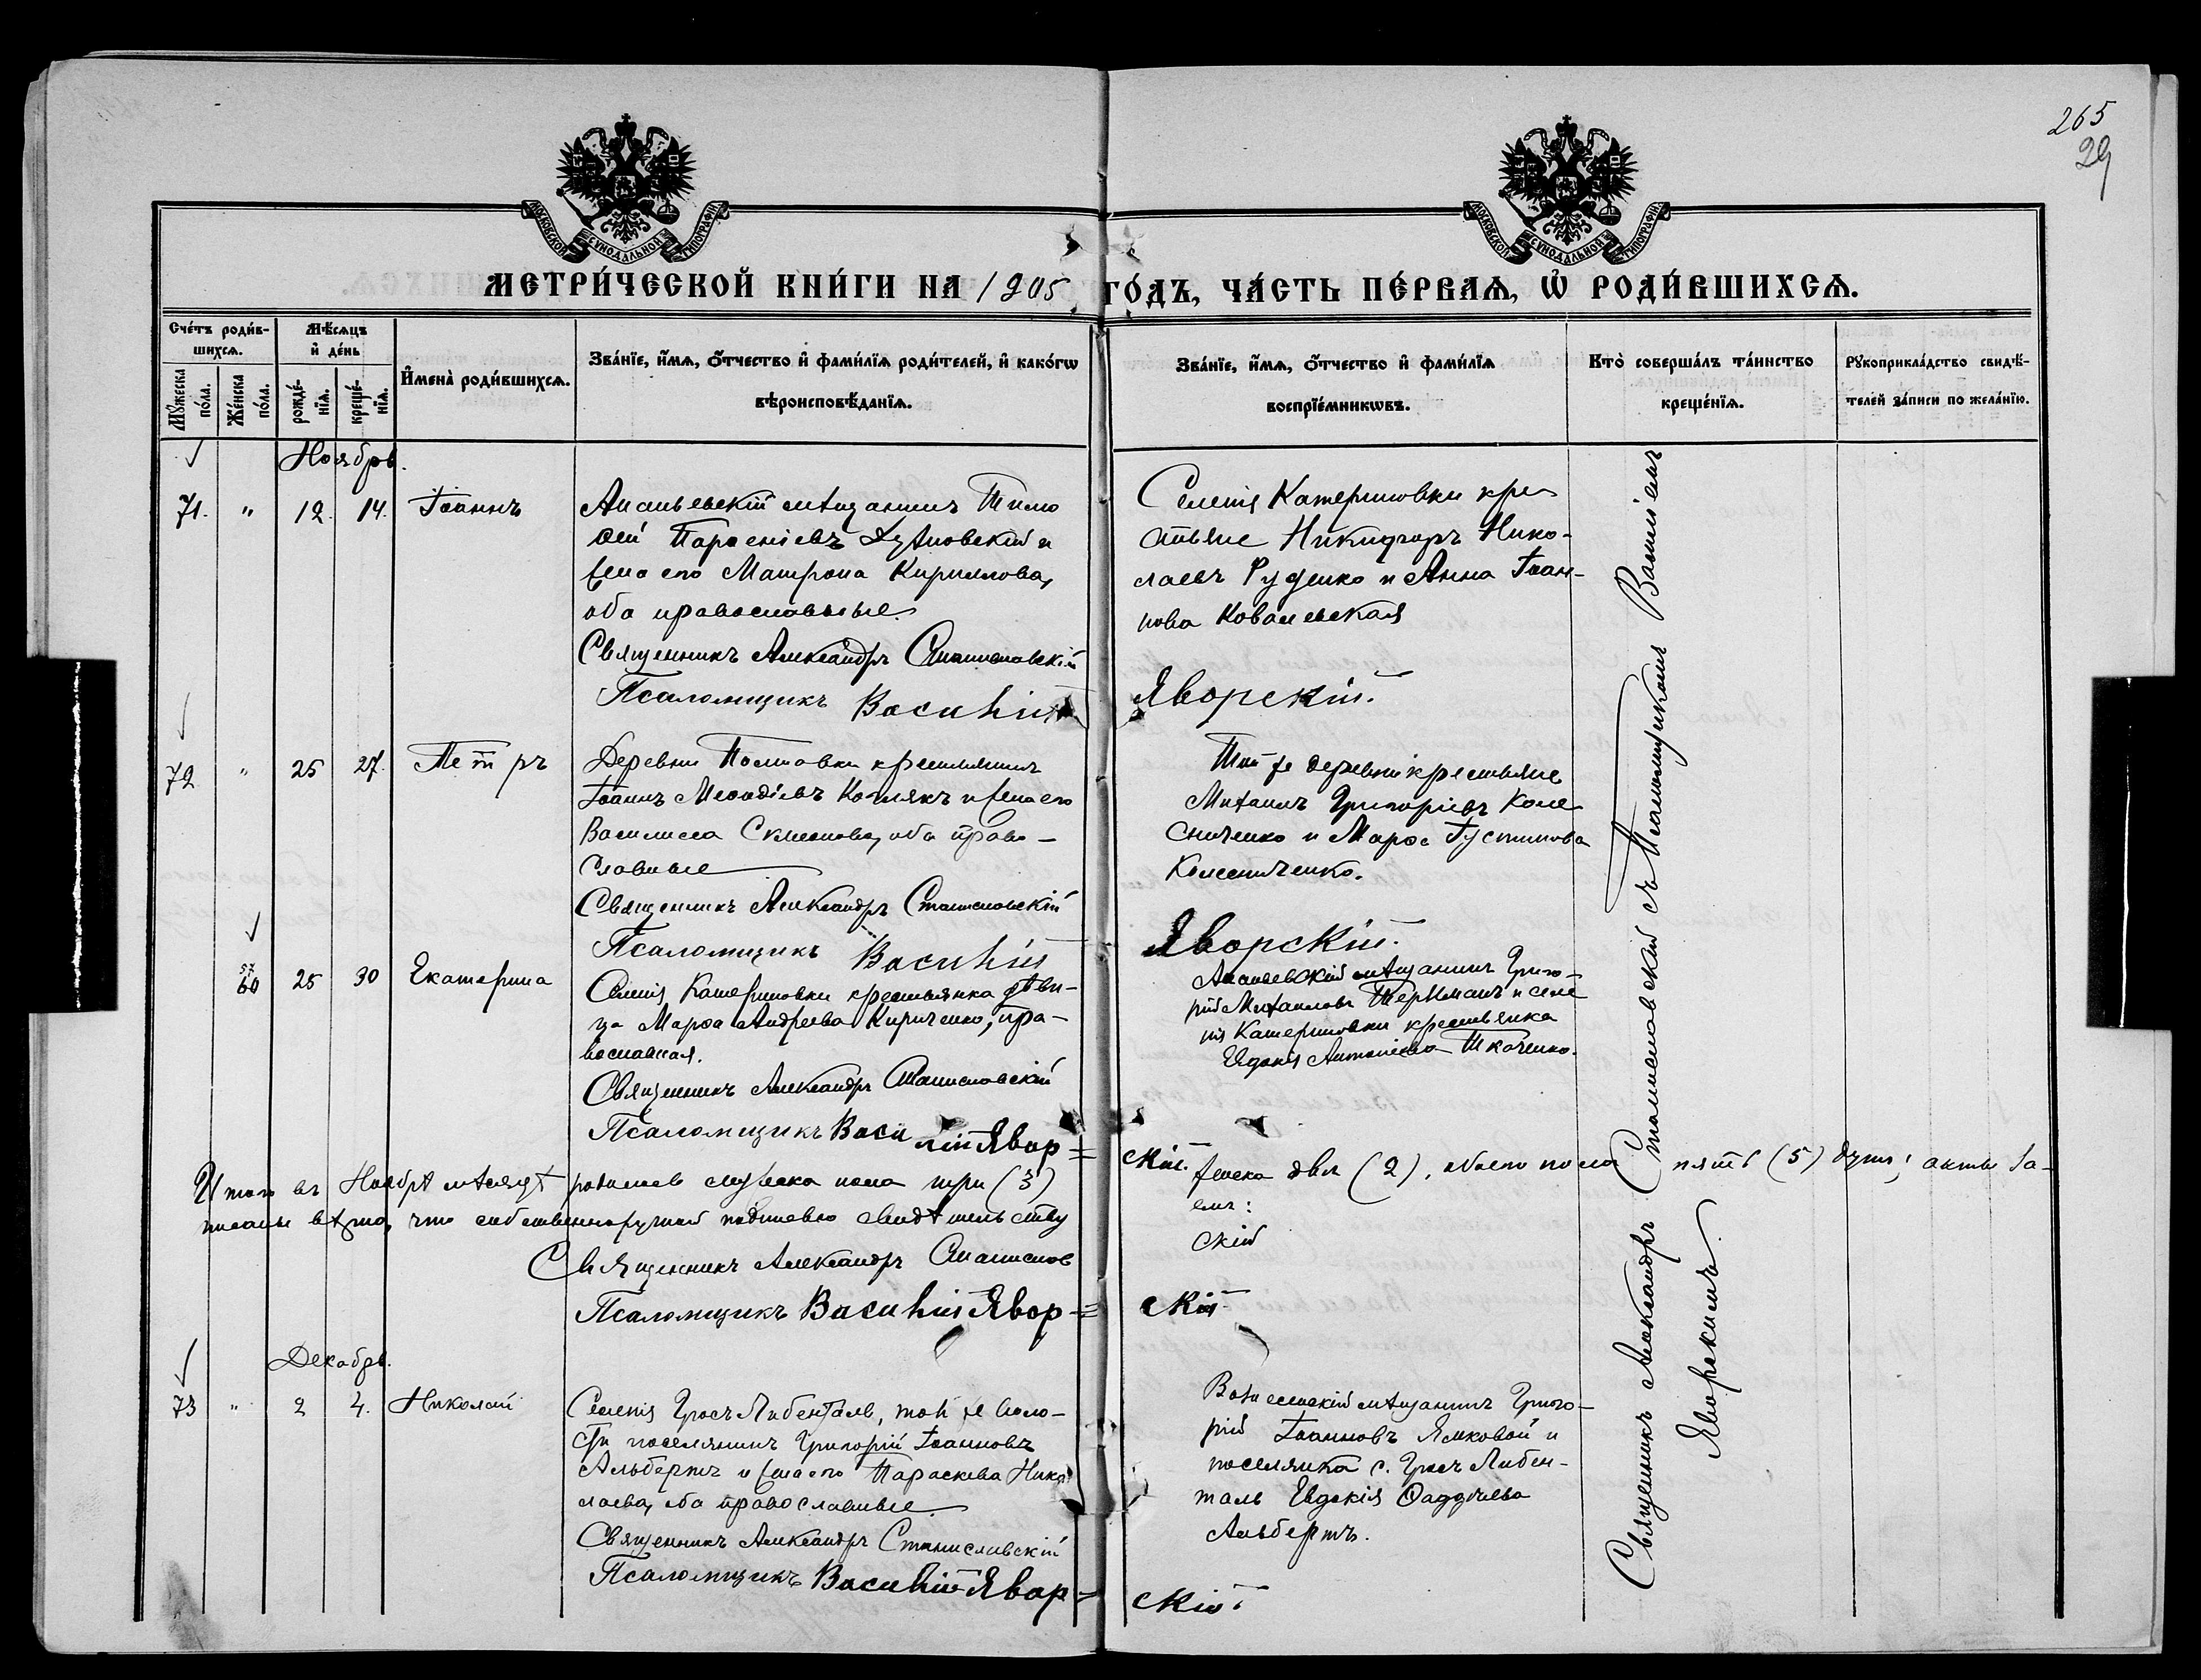 265
29
МОСКОВСКОЙ СѴНОДАЛЬНОЙ ТИПОГРАФІИ
МОСКОВСКОЙ СѴНОДАЛЬНОЙ ТИПОГРАФІИ
МЕТРИ́ЧЕСКОЙ КНИ́ГИ НА 1905 ГО́ДЪ, ЧА́СТЬ ПЕ́РВАѦ, Ѡ҆ РОДИ́ВШИХСѦ.
Сче́тъ роди́в-
шихсѧ.
Мꙋ́жеска по́ла.
Же́нска по́ла.
Мѣ́сѧцъ
и҆ де́нь
рожде́-
нїѧ.
креще́-
нїѧ.
И҆мена̀ роди́вшихсѧ.
Зва́нїе, и҆́мѧ, ѻ҆́тчество и҆ фами́лїѧ роди́телей, и҆ како́гѡ
вѣроисповѣ́данїѧ.
Зва́нїе, и҆́мѧ, ѻ҆́тчество и҆ фами́лїѧ
воспрїе́мникѡвъ.
Кто̀ соверша́лъ та́инство
креще́нїѧ.
Рꙋкоприкла́дство свидѣ́-
телей за́писи по жела́нїю.
Ноябрь.
71. " 12. 14. Іоаннъ
Ананьевскій мѣщанинъ Тимо
ѳей Парѳеніевъ
жена его Матрона Кириллова,
оба православные.
Священникъ Александръ Станиславскій
Псаломщикъ Василій Яворскій.
Селенія Катериновки кре
стьяне Никифоръ Нико-
лаевъ Руденко и Анна Іоан-
нова Ковалевская
72 " 25 27. Петръ
Деревни крестьянинъ
Іоаннъ и жена его
Василиса оба право-
славные
Священникъ Александръ Станиславскій
Псаломщикъ Василій Яворскій.
Той же деревни крестьяне
Михаилъ Григоріевъ Коле
сниченко и Марѳа Іустинова
Колесниченко.
57
60 25 30 Екатерина
Селенія Катериновки крестьянка дѣви-
ца Марѳа Андреева Кириченко, пра-
вославная.
Священникъ Александръ Станиславскій
Псаломщикъ Василій Яворскій.
Ананьевскій мѣщанинъ Григо-
рій Михаиловъ и селе
нія Катериновки крестьянка
Евдокія Антоніева Ткаченко.
Итого въ Ноябрѣ мѣсяцѣ родилось мужеска пола три (3) женска два (2), обоего пола пять (5) душъ; акты за-
писаны вѣрно, что собственноручной подписью свидѣтельству емъ:
Священникъ Александръ Станислов скій
Псаломщикъ Василій Явор= скій
Декабрь.
73 " 2 4. Николай
Селенія Гросъ Либенталь, той же воло-
сти поселянинъ Григорій Іоанновъ
Альбертъ и жена его Параскева Нико
лаева, оба православные
Священникъ Александръ Станиславскій
Псаломщикъ Василій Явор= скій
Вознесенскій мѣщанинъ Григо-
рій Іоанновъ Ямковой и
поселянка с. Гросъ Либен-
таль Евдокія Ѳаддѣева
Альбертъ.
Священникъ Александръ Станиславскій съ Псаломщикомъ Василіемъ
Яворскимъ.